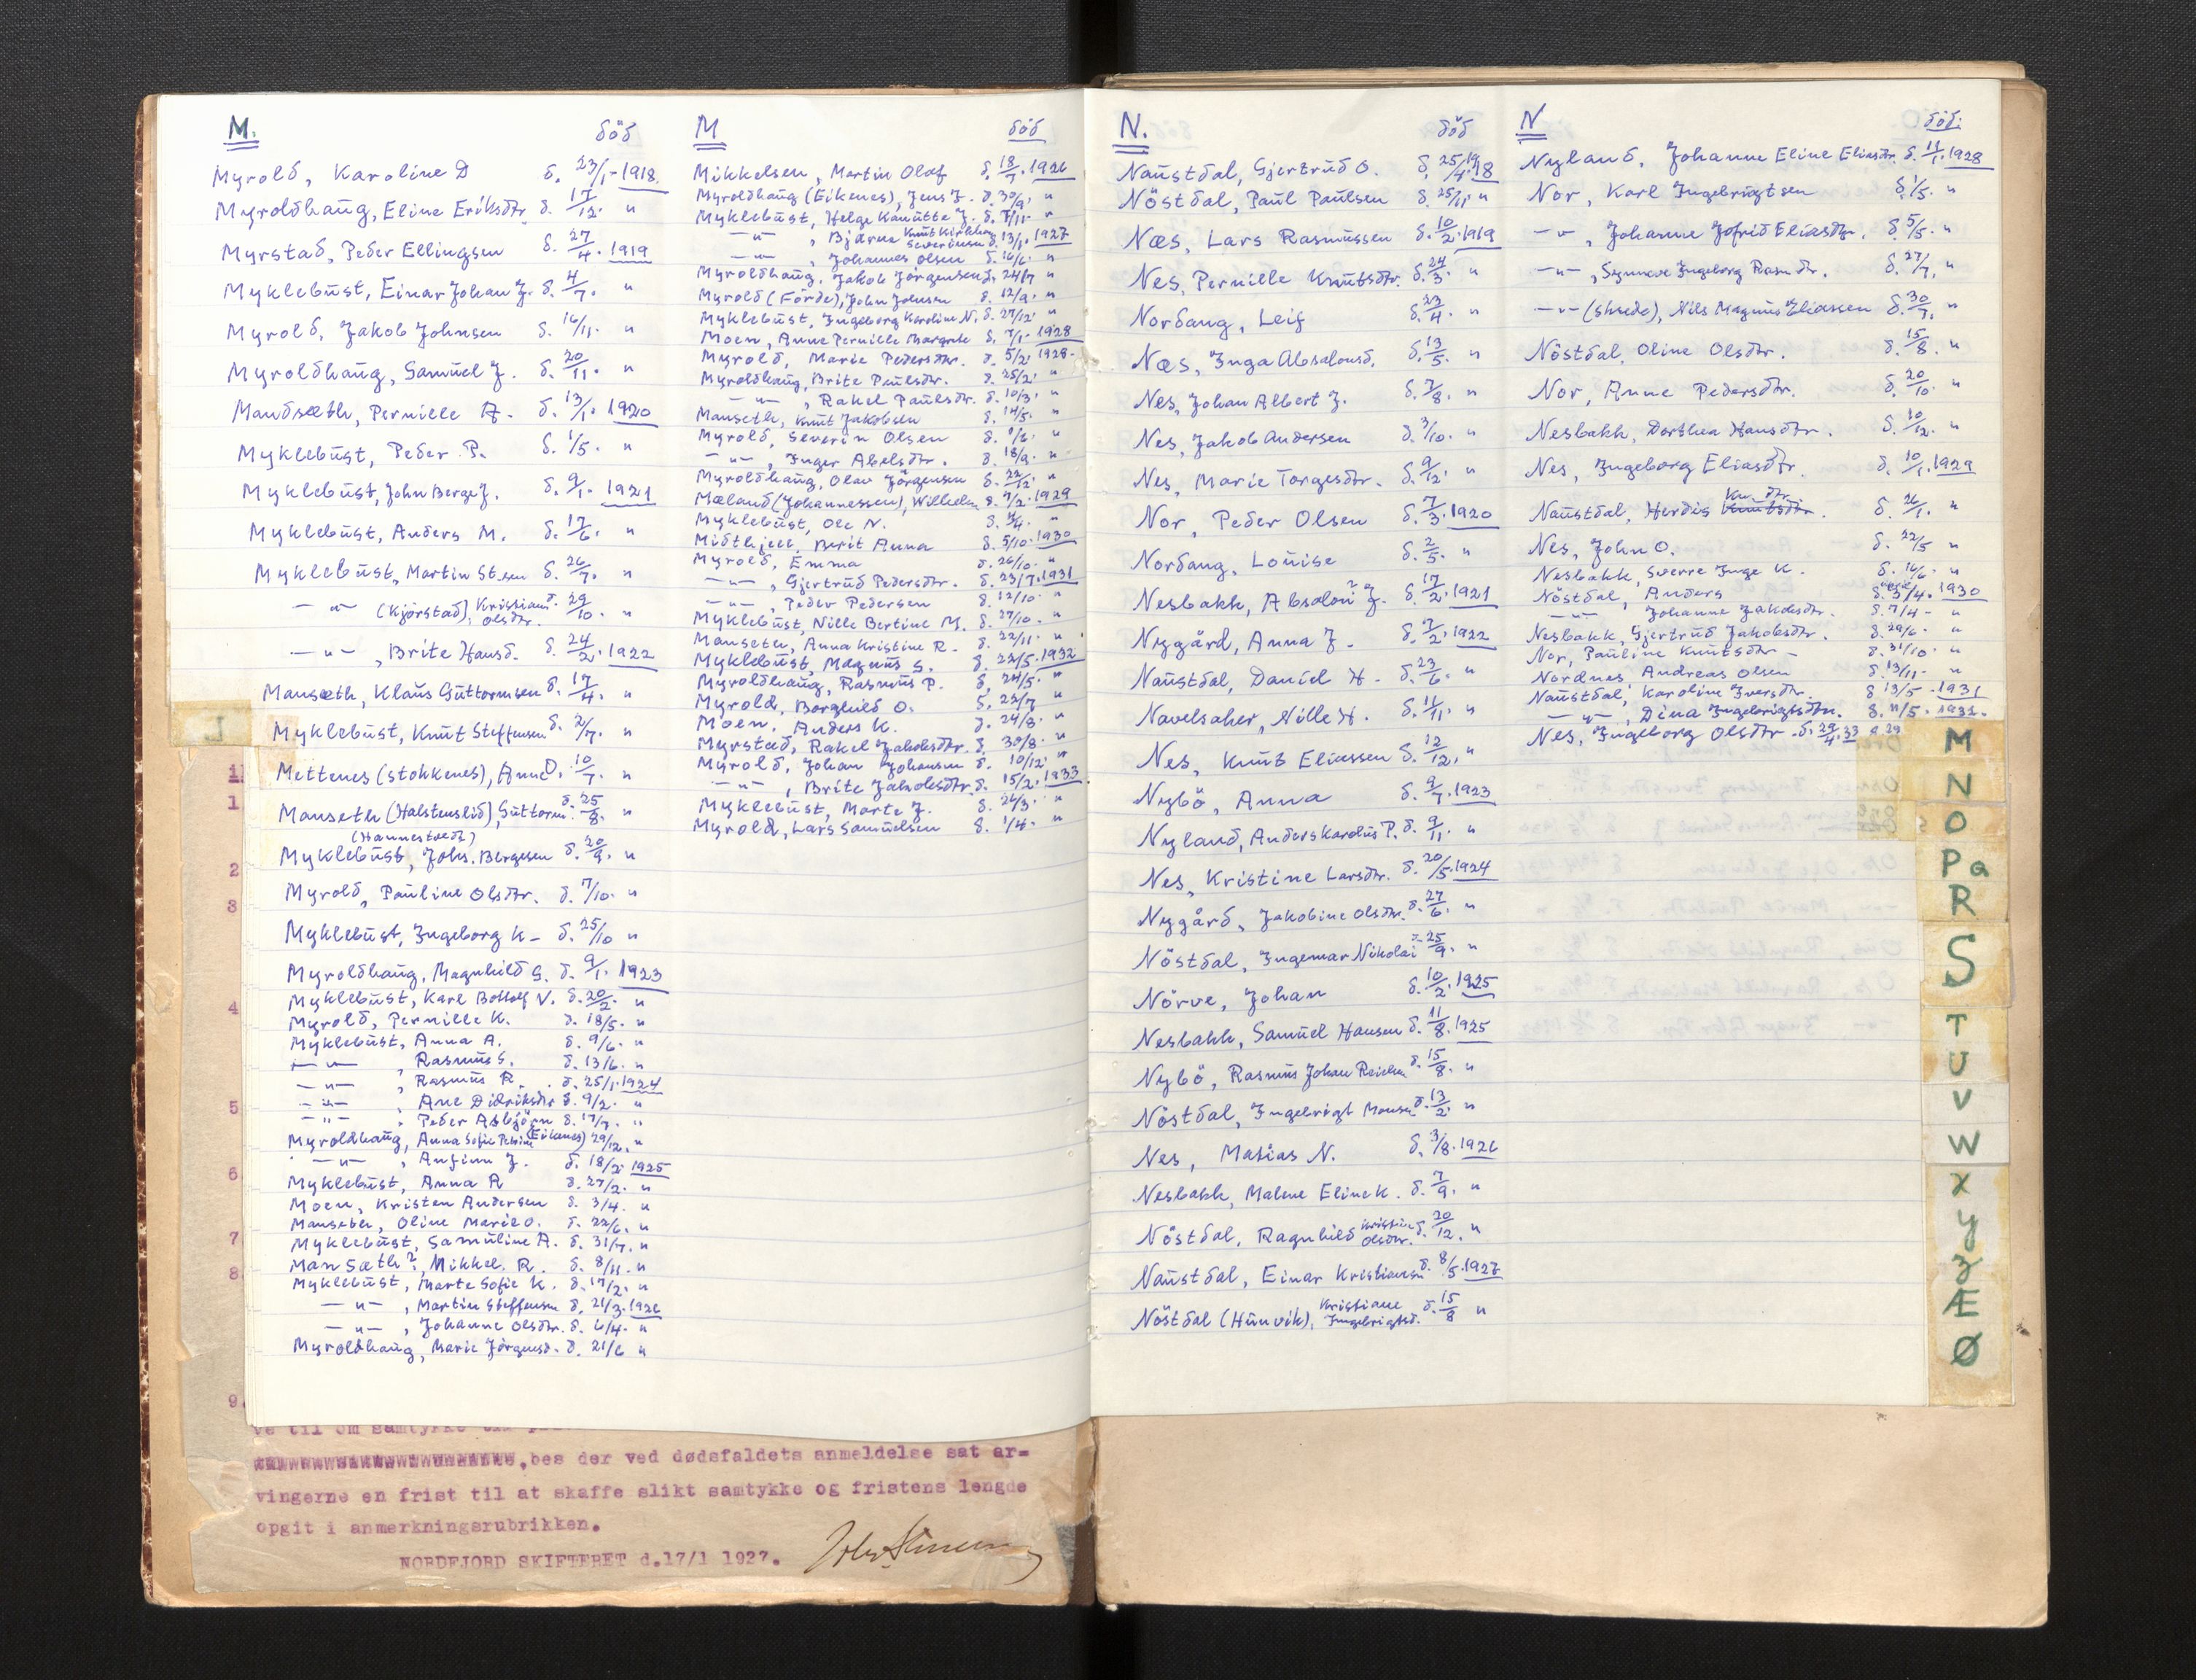 M. död
Myrold, Karoline D d. 23/1-1918.
Myroldhaug, Eline Eriksdtr. d. 17/12. "
Myrstad, Peder Ellingsen d. 27/4. 1919
Myklebust, Einar Johan J. d. 4/7. "
Myrold, Jakob Johnsen d. 16/11. "
Myroldhaug, Samuel J. d. 20/11. "
Mandsæth, Pernille A. d. 13/1. 1920
Myklebust, Peder P. d. 1/5. "
Myklebust, John Berge J. d. 9/1. 1921
Myklebust, Anders M. d. 17/6. "
Myklebust, Martin St.sen d. 26/7. "
—"— (Kjörstad), Kristiane Olsdtr. d. 29/10. "
—"—, Brite Hansd. d. 24/2. 1922
Mansæth, Klaus Guttormsen d. 17/4. "
Myklebust, Knut Steffensen d. 2/7. "
Mettenes (Stokkenes), Anne O. 10/7. "
Manseth (Halstenslid), Guttorm. d. 25/8. "
(Hannestvedt)
Myklebust, Johs. Bergesen d. 20/9. "
Myrold, Pauline Olsdtr. d. 7/10. "
Myklebust, Ingeborg K- d. 25/10 "
Myroldhaug, Magnhild S. d. 9/1. 1923
Myklebust, Karl Bottolf N. d. 20/2. "
Myrold, Pernille K. d. 18/5. "
Myklebust, Anna A. d. 9/6. "
—"— Rasmus S. d. 13/6. "
—"—, Rasmus R. d. 25/1. 1924
—"—, Ane Didriksdtr d. 9/2. "
—"—, Peder Asbjörn d. 17/7. "
Myroldhaug, Anna Sofie Petrine (Eikenes) 29/12. "
—"—, Anfinn J. d. 18/2. 1925
Myklebust, Anna R d. 27/2. "
Moen, Kristen Andersen d. 3/4. "
Manseth, Oline Marie O. d. 22/6. "
Myklebust, Samuline A. d. 31/7. "
Mansæth?, Mikkel R. d. 8/11. "
Myklebust, Marte Sofie K. d. 17/12. "
—"—, Martin Steffensen d. 21/3. 1926
—"—, Johanne Olsdtr. d. 6/4. "
Myroldhaug, Marie Jörgensd. d. 21/6 "
M död
Mikkelsen, Martin Olaf d. 18/7. 1926
Myroldhaug (Eikenes), Jens J. d. 30/9. "
Myklebust, Helge Kanutte J. d. 7/11- "
—"—, Bjarne Knut Severinsen d. 13/1. 1927
—"—, Johannes Olsen d. 16/6. "
Myroldhaug, Jakob Jörgensen d. 24/7 "
Myrold (Förde), John Johnsen d. 12/9. "
Myklebust, Ingeborg Karoline N. d. 27/12. "
Moen, Anne Pernille Margrete d. 7/1- 1928
Myrold, Marie Pedersdtr. d. 5/2. 1928-
Myroldhaug, Brite Paulsdtr. d. 25/2. "
—"—, Rakel Paulsdtr. d. 10/3. "
Manseth, Knut Jakobsen d. 14/5. "
Myrold, Severin Olsen d. 1/6. "
—"—, Inger Abelsdtr. d. 18/9. "
Myroldhaug, Olav Jörgensen d. 22/12. "
Mæland (Johannessen), Wilhelm d. 7/2. 1929
Myklebust, Ole N. d. 4/4. "
Midthjell, Berit Anna d. 5/10. 1930
Myrold, Emma d. 26/10. "
—"—, Gjertrud Pedersdtr. d. 23/7. 1931
—"—, Peder Pedersen d. 12/10. "
Myklebust, Nille Bertine M. d. 27/10. "
Manseth, Anna Kristine R. d. 22/11. "
Myklebust, Magnus S. d. 23/5. 1932
Myroldhaug, Rasmus P. d. 24/5. "
Myrold, Borghild O. d. 23/7 "
Moen, Anders K. d. 24/8. "
Myrstad, Rakel Jakobsdtr. d. 30/8. "
Myrold, Johan Johansen d. 10/12. "
—"—, Brite Jakobsdtr. d. 15/2. 1933.
Myklebust, Marte J. d. 26/3. "
Myrold, Lars Samuelsen d. 1/4. "
N. död
Naustdal, Gjertrud O. d. 25/4. 1918
Nöstdal, Paul Paulsen d. 25/11. "
Næs, Lars Rasmussen d. 10/2. 1919
Nes, Pernille Knutsdtr. d. 24/3. "
Nordang, Leif d. 23/4. "
Næs, Inga Absalonsd. d. 13/5. "
Nes, Johan Albert J. d. 7/8. "
Nes, Jakob Andersen d. 3/10. "
Nes, Marie Torgesdtr. d. 9/12. "
Nor, Peder Olsen d. 7/3. 1920
Nordang, Louise d. 2/5. "
Nesbakk, Absalon? J. d. 17/2. 1921
Nygård, Anna J. d. 7/2. 1922
Naustdal, Daniel H. d. 23/6. "
Navelsaker, Nille H. d. 11/11. "
Nes, Knut Eliassen d. 12/12. "
Nybö, Anna d. 9/7. 1923
Nyland, Anders Karolus P. d. 9/11. "
Nes, Kristine Larsdtr. d. 20/5. 1924
Nygård, Jakobine Olsdtr. d. 27/6. "
Nöstdal, Ingemar Nikolai d. 25/9. "
Nörve, Johan d. 10/2. 1925
Nesbakk, Samuel Hansen d. 11/8. 1925
Nybö, Rasmus Johan Reiel d. 15/8. "
Nöstdal, Ingebrigt Monsen d. 13/2. "
Nes, Matias N. d. 3/8. 1926
Nesbakk, Malene Eline K. d. 7/9. "
Nöstdal, Ragnhild Kristine Olsdtr. d. 20/12. "
Naustdal, Einar Kristiansen d. 8/5. 1927
Nöstdal (Hunvik), Kristiane Ingebrigtsd. d. 15/8 "
N död:
Nyland, Johanne Eline Eliasdtr. d. 11/1. 1928
Nor, Karl Ingebrigtsen d. 1/5. "
—"—, Johanne Jofrid Eliasdtr. d. 5/5. "
—"—, Synneve Ingeborg Rasm dtr. d. 27/7. "
—"— (Skrede), Nils Magnus Eliassen d. 30/7. "
Nöstdal, Oline Olsdtr. d. 15/8. "
Nor, Anne Pedersdtr. d. 20/10. "
Nesbakk, Dorthea Hansdtr. d. 10/12. "
Nes, Ingeborg Eliasdtr. d. 10/1. 1929
Kn. dtr.
Naustdal, Herdis Knutsdtr. d. 26/1. "
Nes, John O. d. 22/5 "
Nesbakk, Sverre Inge K. d. 16/6. "
Nöstdal, Anders d. 3/4. 1930
—"— Johanne Jakobsdtr. d. 7/4- "
Nesbakk, Gjertrud Jakobsdtr. d. 29/6. "
Nor, Pauline Knutsdtr - d. 31/10. "
Nordnes, Andreas Olsen d. 13/11. "
Naustdal, Karoline Iversdtr. d 13/5. 1931
—"—, Dina Ingebrigtsdtr. d. 11/5. 1932.
Nes, Ingeborg Olsdtr. d. 29/4. 33 a 29
M
N
O
P a
R
S
T
U
V
W
X
Y
Z
Æ
Ø
J
1
1
2
3
4
5
6
7
8
9.
ve til om samtykke
,bes der ved dødsfaldets anmeldelse sat ar=
vingerne en frist til at skaffe slikt samtykke og fristens lengde
opgit i anmerkningsrubrikken.
NORDFJORD SKIFTERET d.17/1 1927.